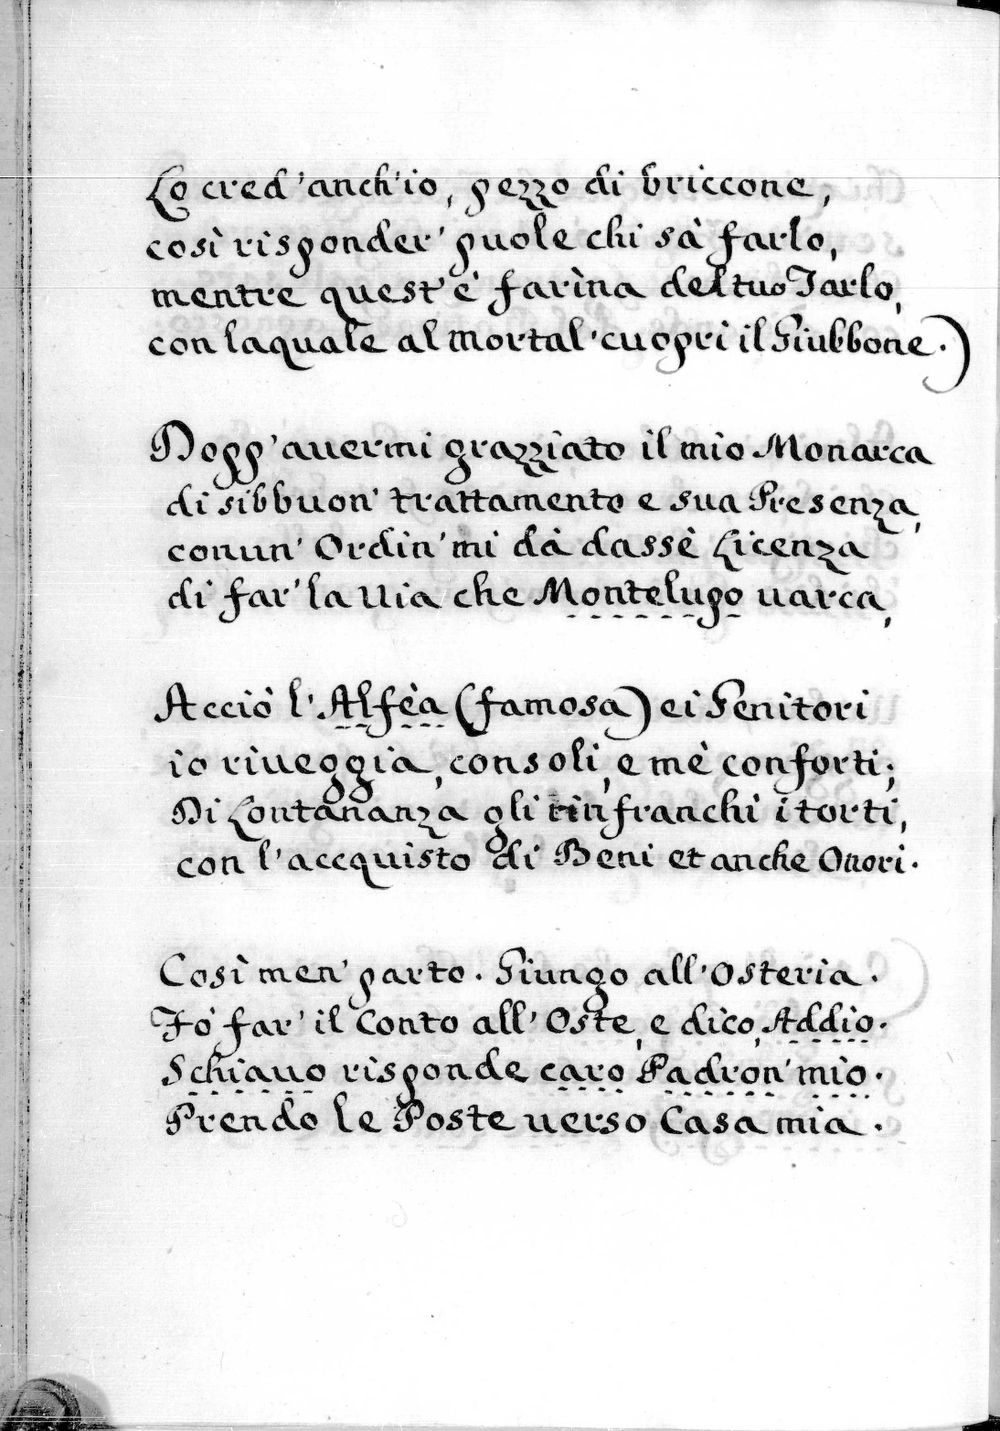 Lo cred'anch'io, pezzo di briccone,
così risponder' puole chi sà farlo,
mentre quest'è farìna del tuo Tarlo,
con laquale al mortal'cuopri il Giubbone.)
Dopp'auermi grazziato il mio Monarca
di sibbuon' trattamento e sua Presenza,
conun' Ordin' mi dà dassè Licenza
di far' la Via che Montelupo uarca,
Acciò l'Alfèa (famosa) ei Genitori
io riueggia, consoli, e mè conforti;
Di Lontananza gli rinfranchi i torti,
con l'accquisto di Beni et anche Onori.
Così men' parto. Giungo all'Osteria.
Fò far' il Conto all'Oste, e dico, Addio.
Schiauo risponde caro Padron' mio.
Prendo le Poste uerso Casa mia.